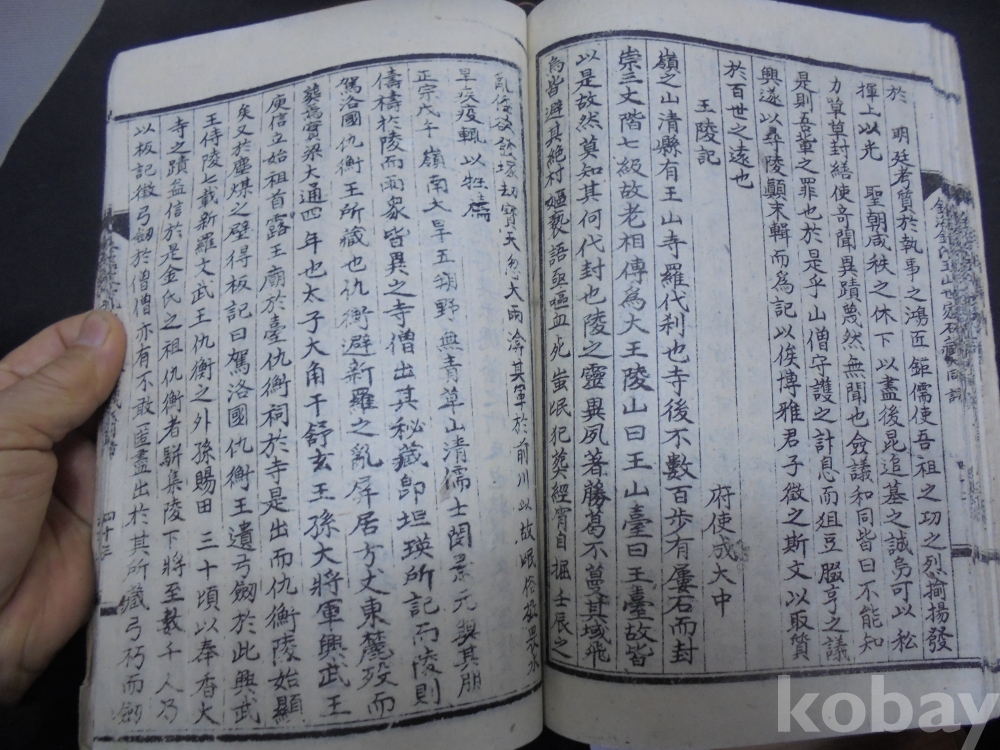 於　明廷考質於執事之鴻近鉅儒使吾祖之功之烈揄揚發
揮上以光　聖朝咸秩之休下以盡後昆追墓之誠烏可以松
力草草封繕使奇聞異蹟蔑然無聞也僉議和同皆曰不能知
是則吾輩之罪也於是乎山僧守護之計息而俎豆腏享之議
興遂以尋陵顚末輯而爲記以俟博雅君子徵之斯文以取質
於百世之遠也
王陵記
府使成大中
嶺之山清縣有王山寺羅代刹也寺後不數百步有屢石而封
崇三丈階七級故老相傳爲大王陵山曰王山臺曰王臺故皆
以是故然莫知其何代封也陵之靈異夙著勝葛不蔓其域飛
鳥皆避其絶村嫗褻語亟嘔血死蚩氓犯葬經宵自掘壬辰之
亂倭欲詠塚刧寶天忽大雨淪其軍於前川以故氓俗敬畏水
旱疾疫輒以牲禱
正宗戊午嶺南大旱五朔野無靑草山清儒士閔景元與其朋
儕禱於陵而雨家皆異之寺僧出其秘藏卽坦瑛所記而陵則
駕洛國仇衡王所藏也仇衡避新羅之亂屏居方丈東麓歿而
葬焉實梁大通四年也太子大角干舒玄王孫大將軍興武王
庚信立始祖首露王廟於臺仇衡祠於寺是出而仇衡陵始顯
矣又於塵煤之壁得板記曰駕洛國仇衡王遺弓劒於此興武
王侍陵七載新羅文武王仇衡之外孫賜田　三十頃以奉香火
寺之蹟益信於是金氏之祖仇衡者駢集陵下將至數千人乃
以板記徵弓劒於僧僧亦有不敢匿盡出於其所藏弓朽而劒
四十三
kobay